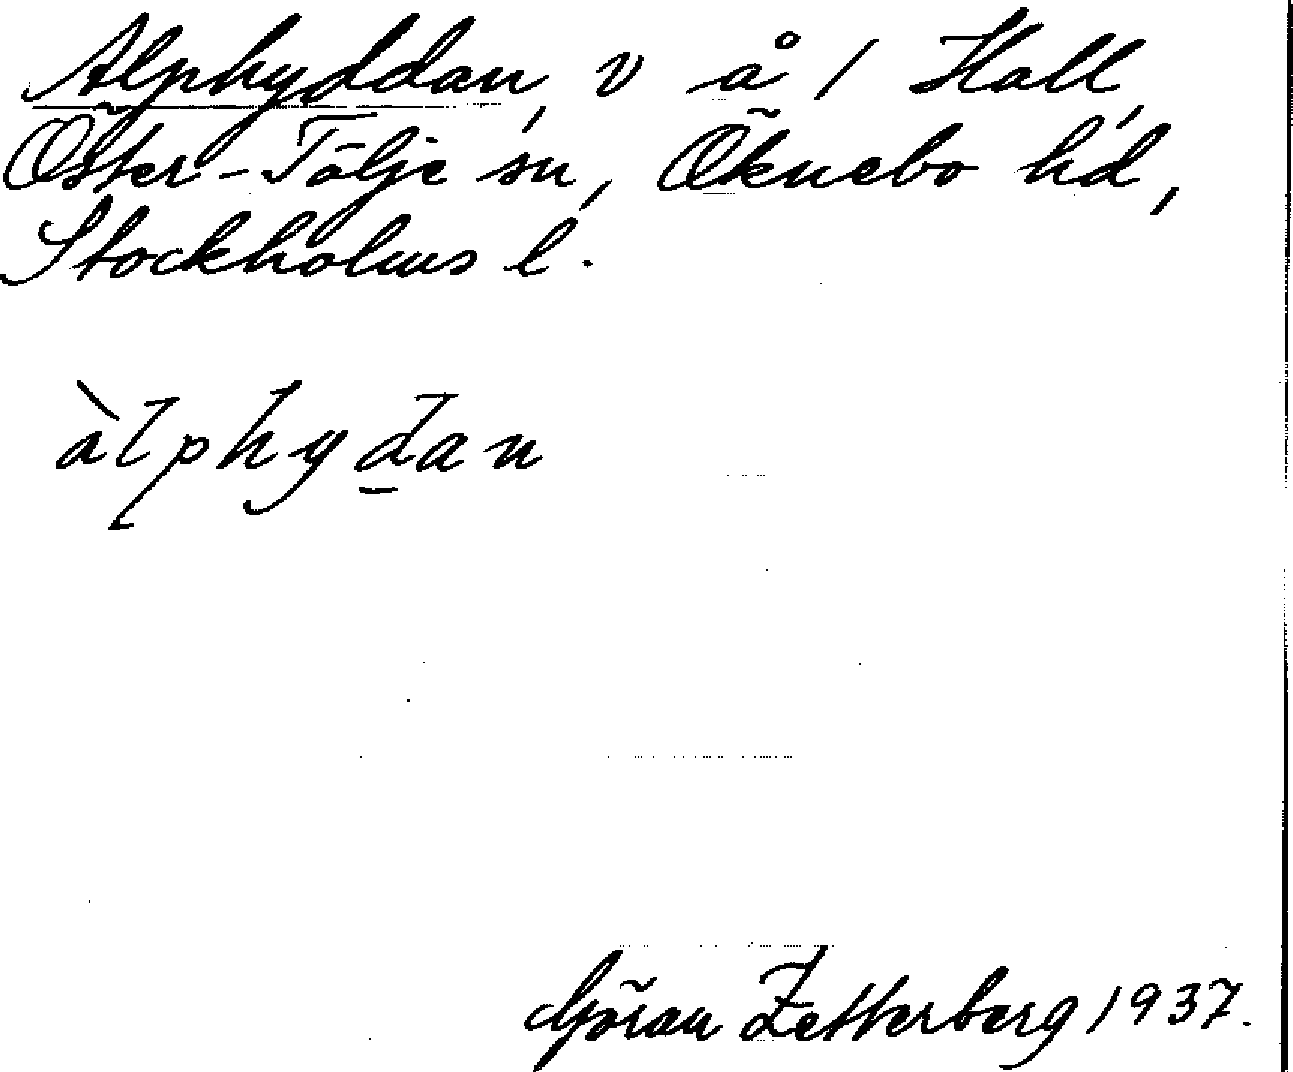 Alphyddan, v å / Hall,
Öster-Tälje sn, Öknebo hd,
Stockholms l.
àlphyḏan
Göran Zetterberg 1937.